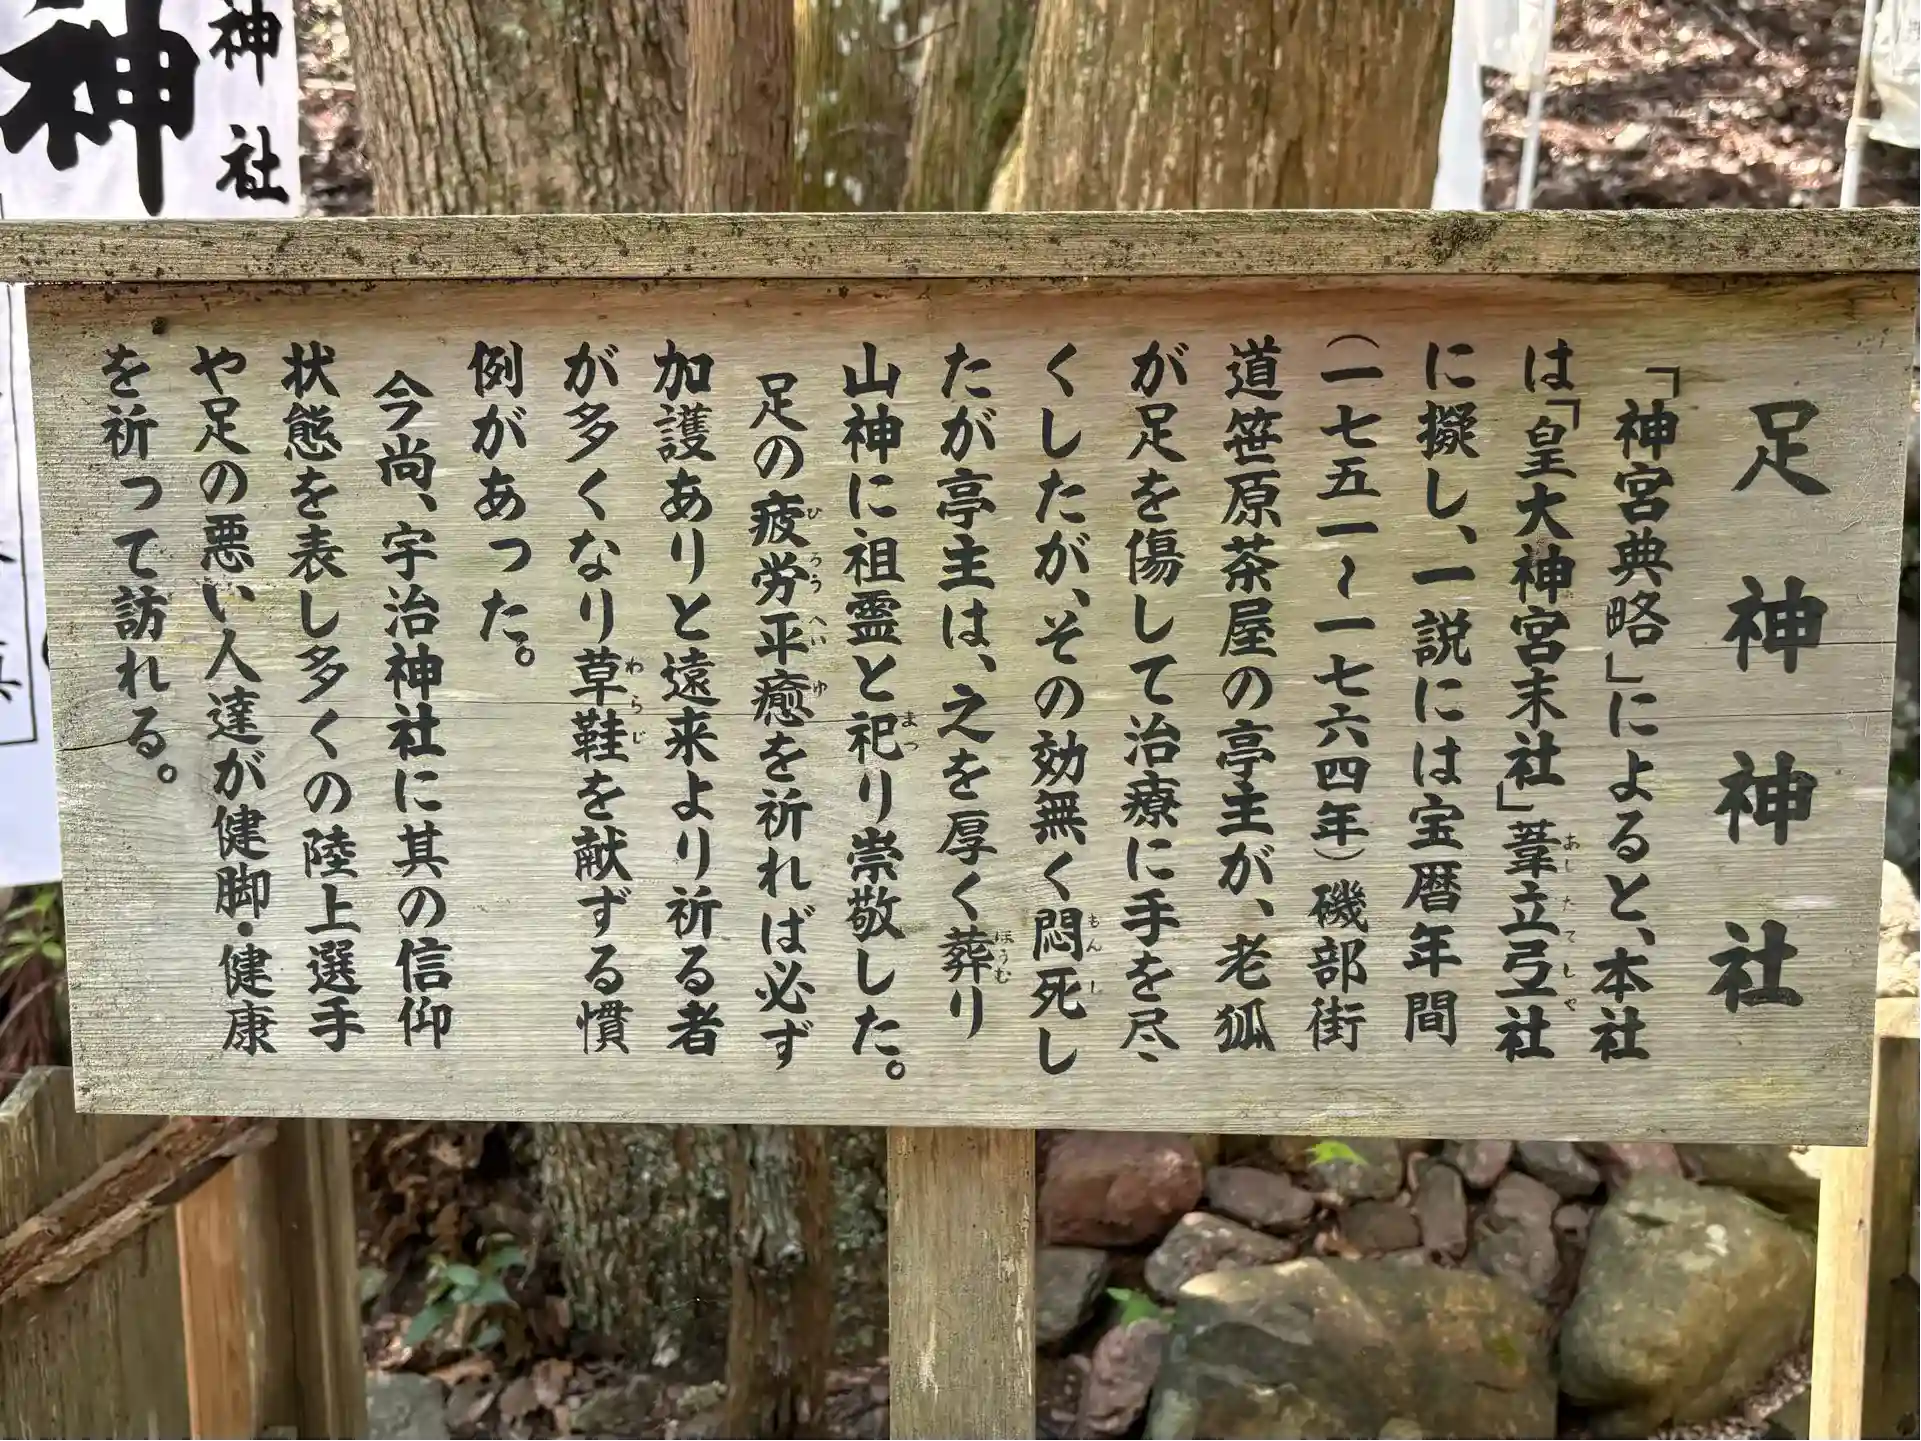 足神神社
「神宮典略」によると、本社
は「皇大神宮末社」葦立弖社
に擬し、一説には宝暦年間
(一七五一~一七六四年)磯部街
道笹原茶屋の亭主が、老狐
が足を傷して治療に手を尽
くしたが、その効無く悶死し
たが亭主は、之を厚く葬り
山神に祖霊と祀り崇敬した。
足の疲労平癒を祈れば必ず
加護ありと遠来より祈る者
が多くなり草鞋を献ずる慣
例があった。
今尚、宇治神社に其の信仰
状態を表し多くの陸上選手
や足の悪い人達が健脚・健康
を祈って訪れる。
あしたてしや
もんし
ほうむ
まつ
ひろうへいゆ
わらじ
神社
神